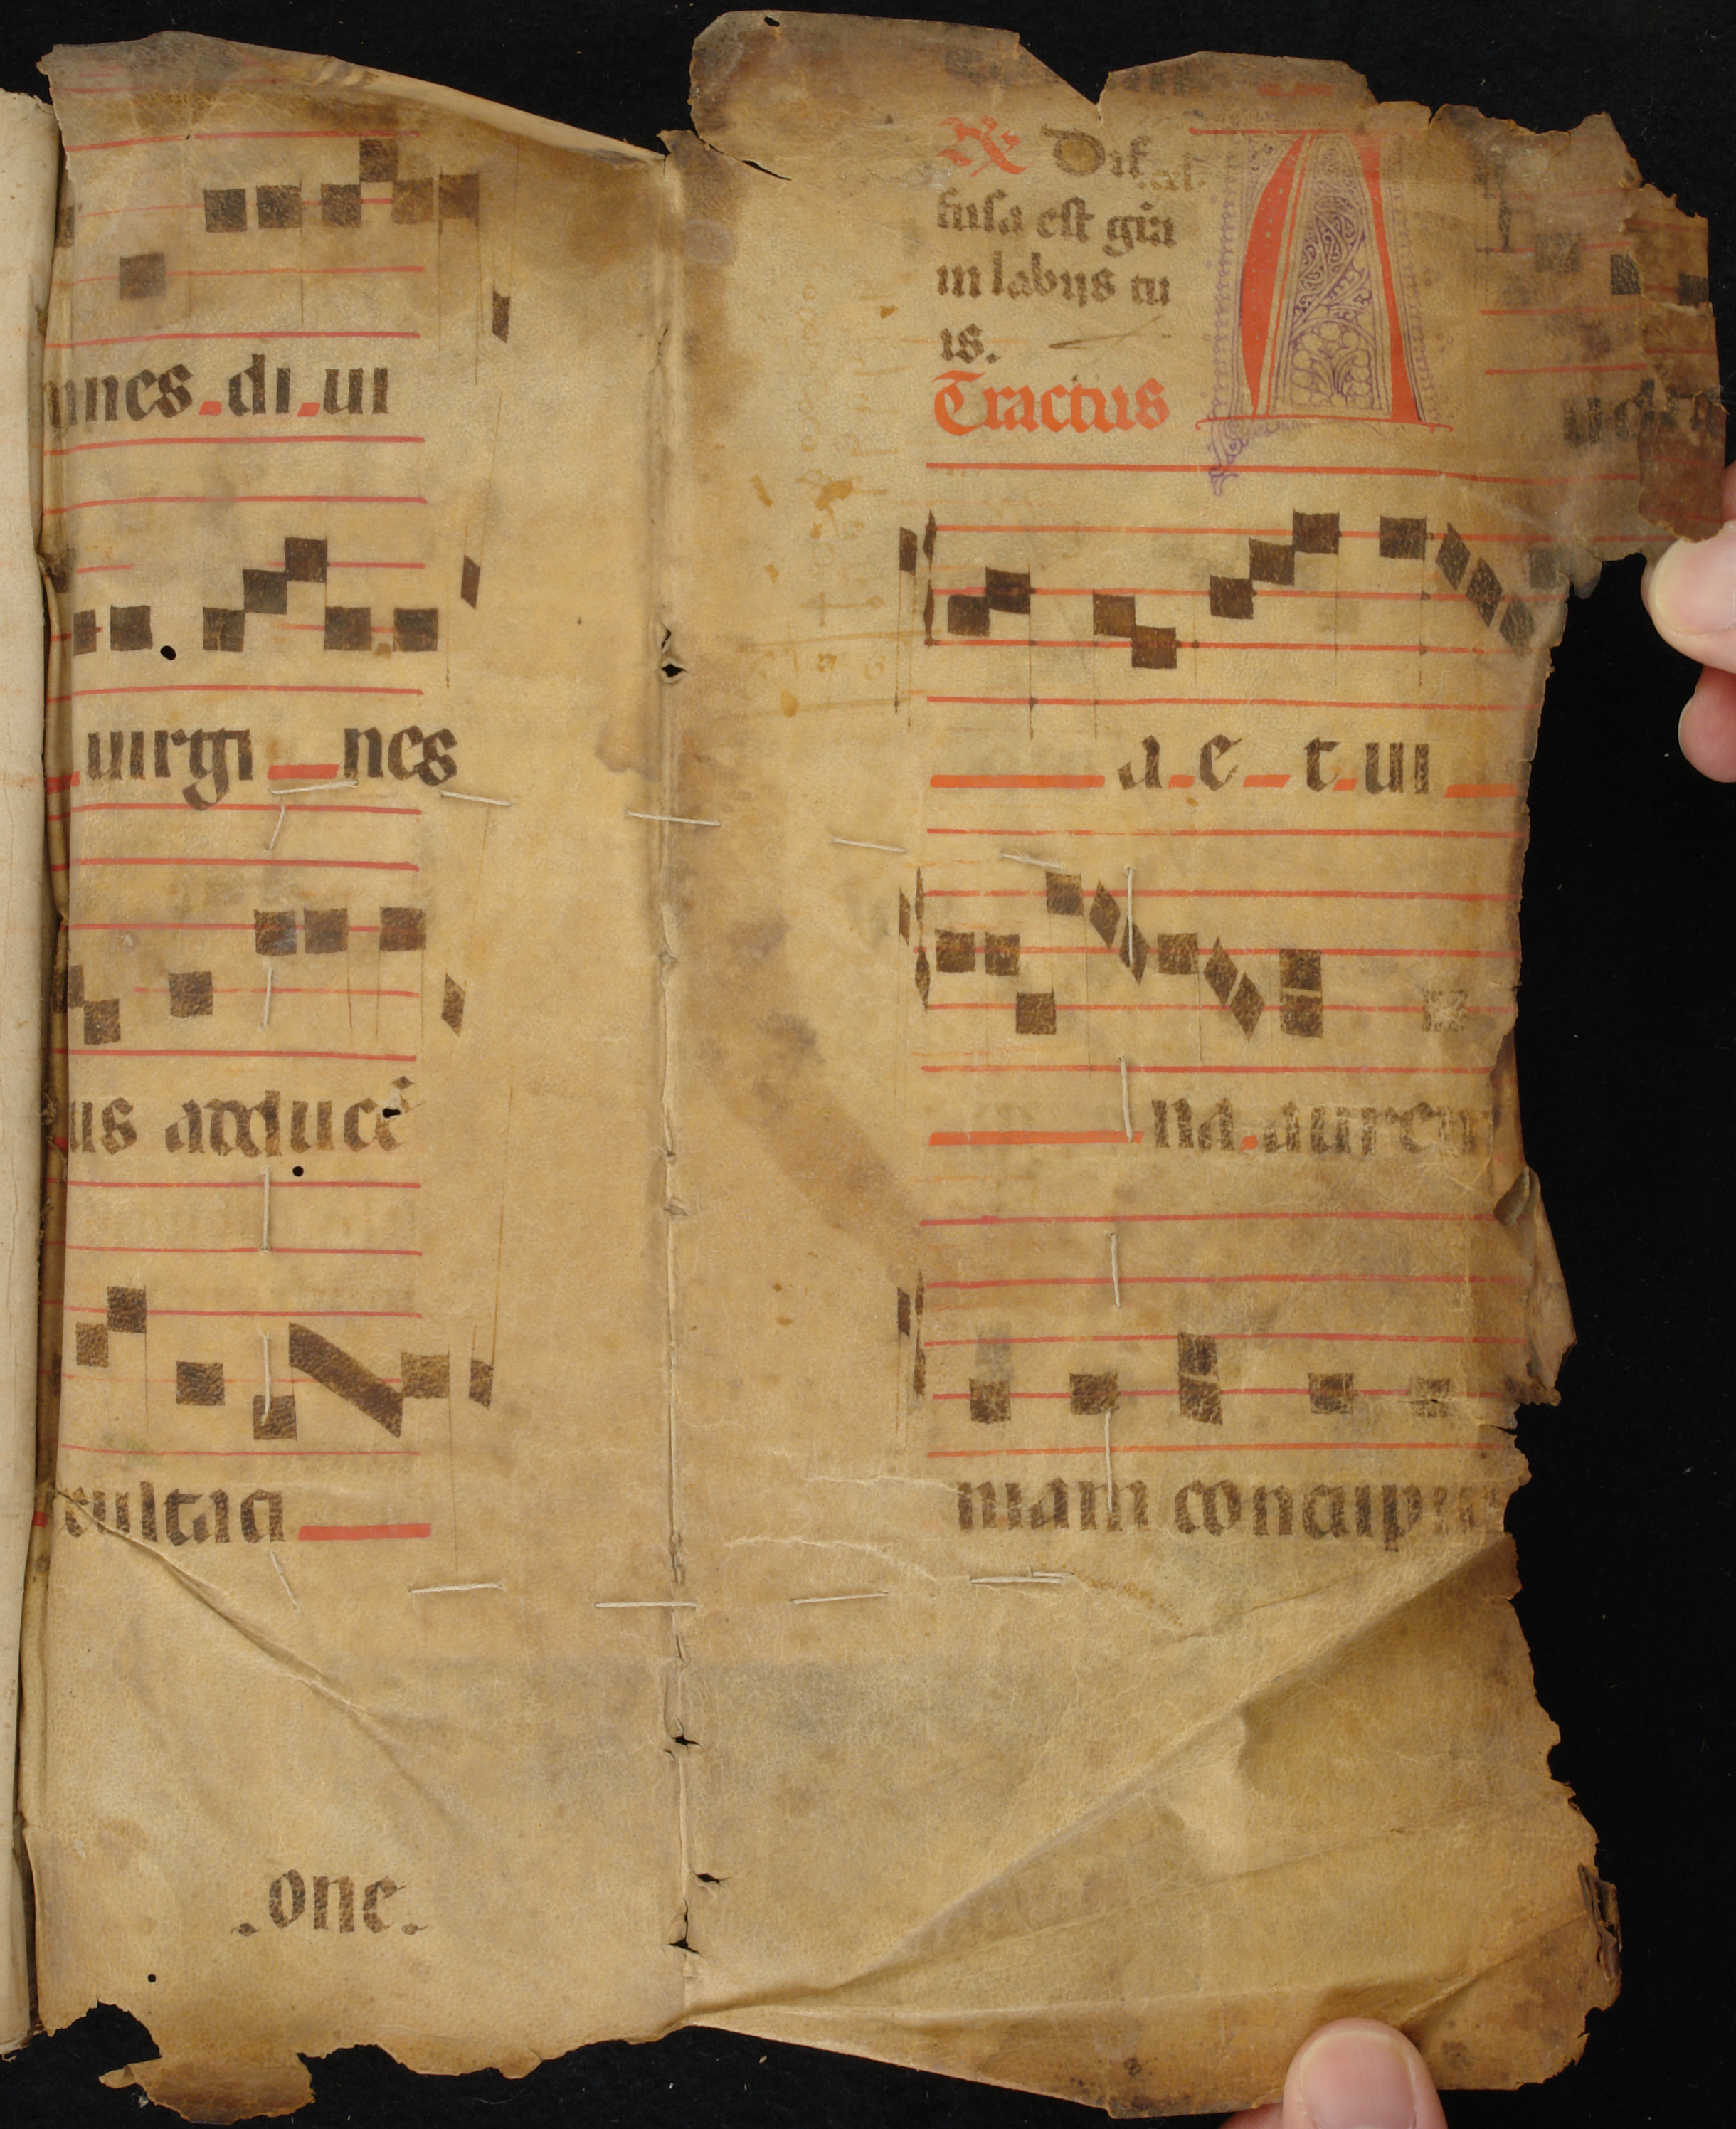 mnes di ui
uirgi nes
us adducē
cultaci
one.
R Dif
fusa est grā
in labijs tu
is.
Tractus
A udi
a e t ui
na aurem
niam concupi